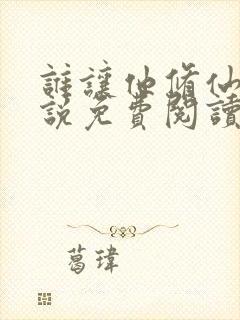 誰讓他修仙
說免費閱讀
葛瑋